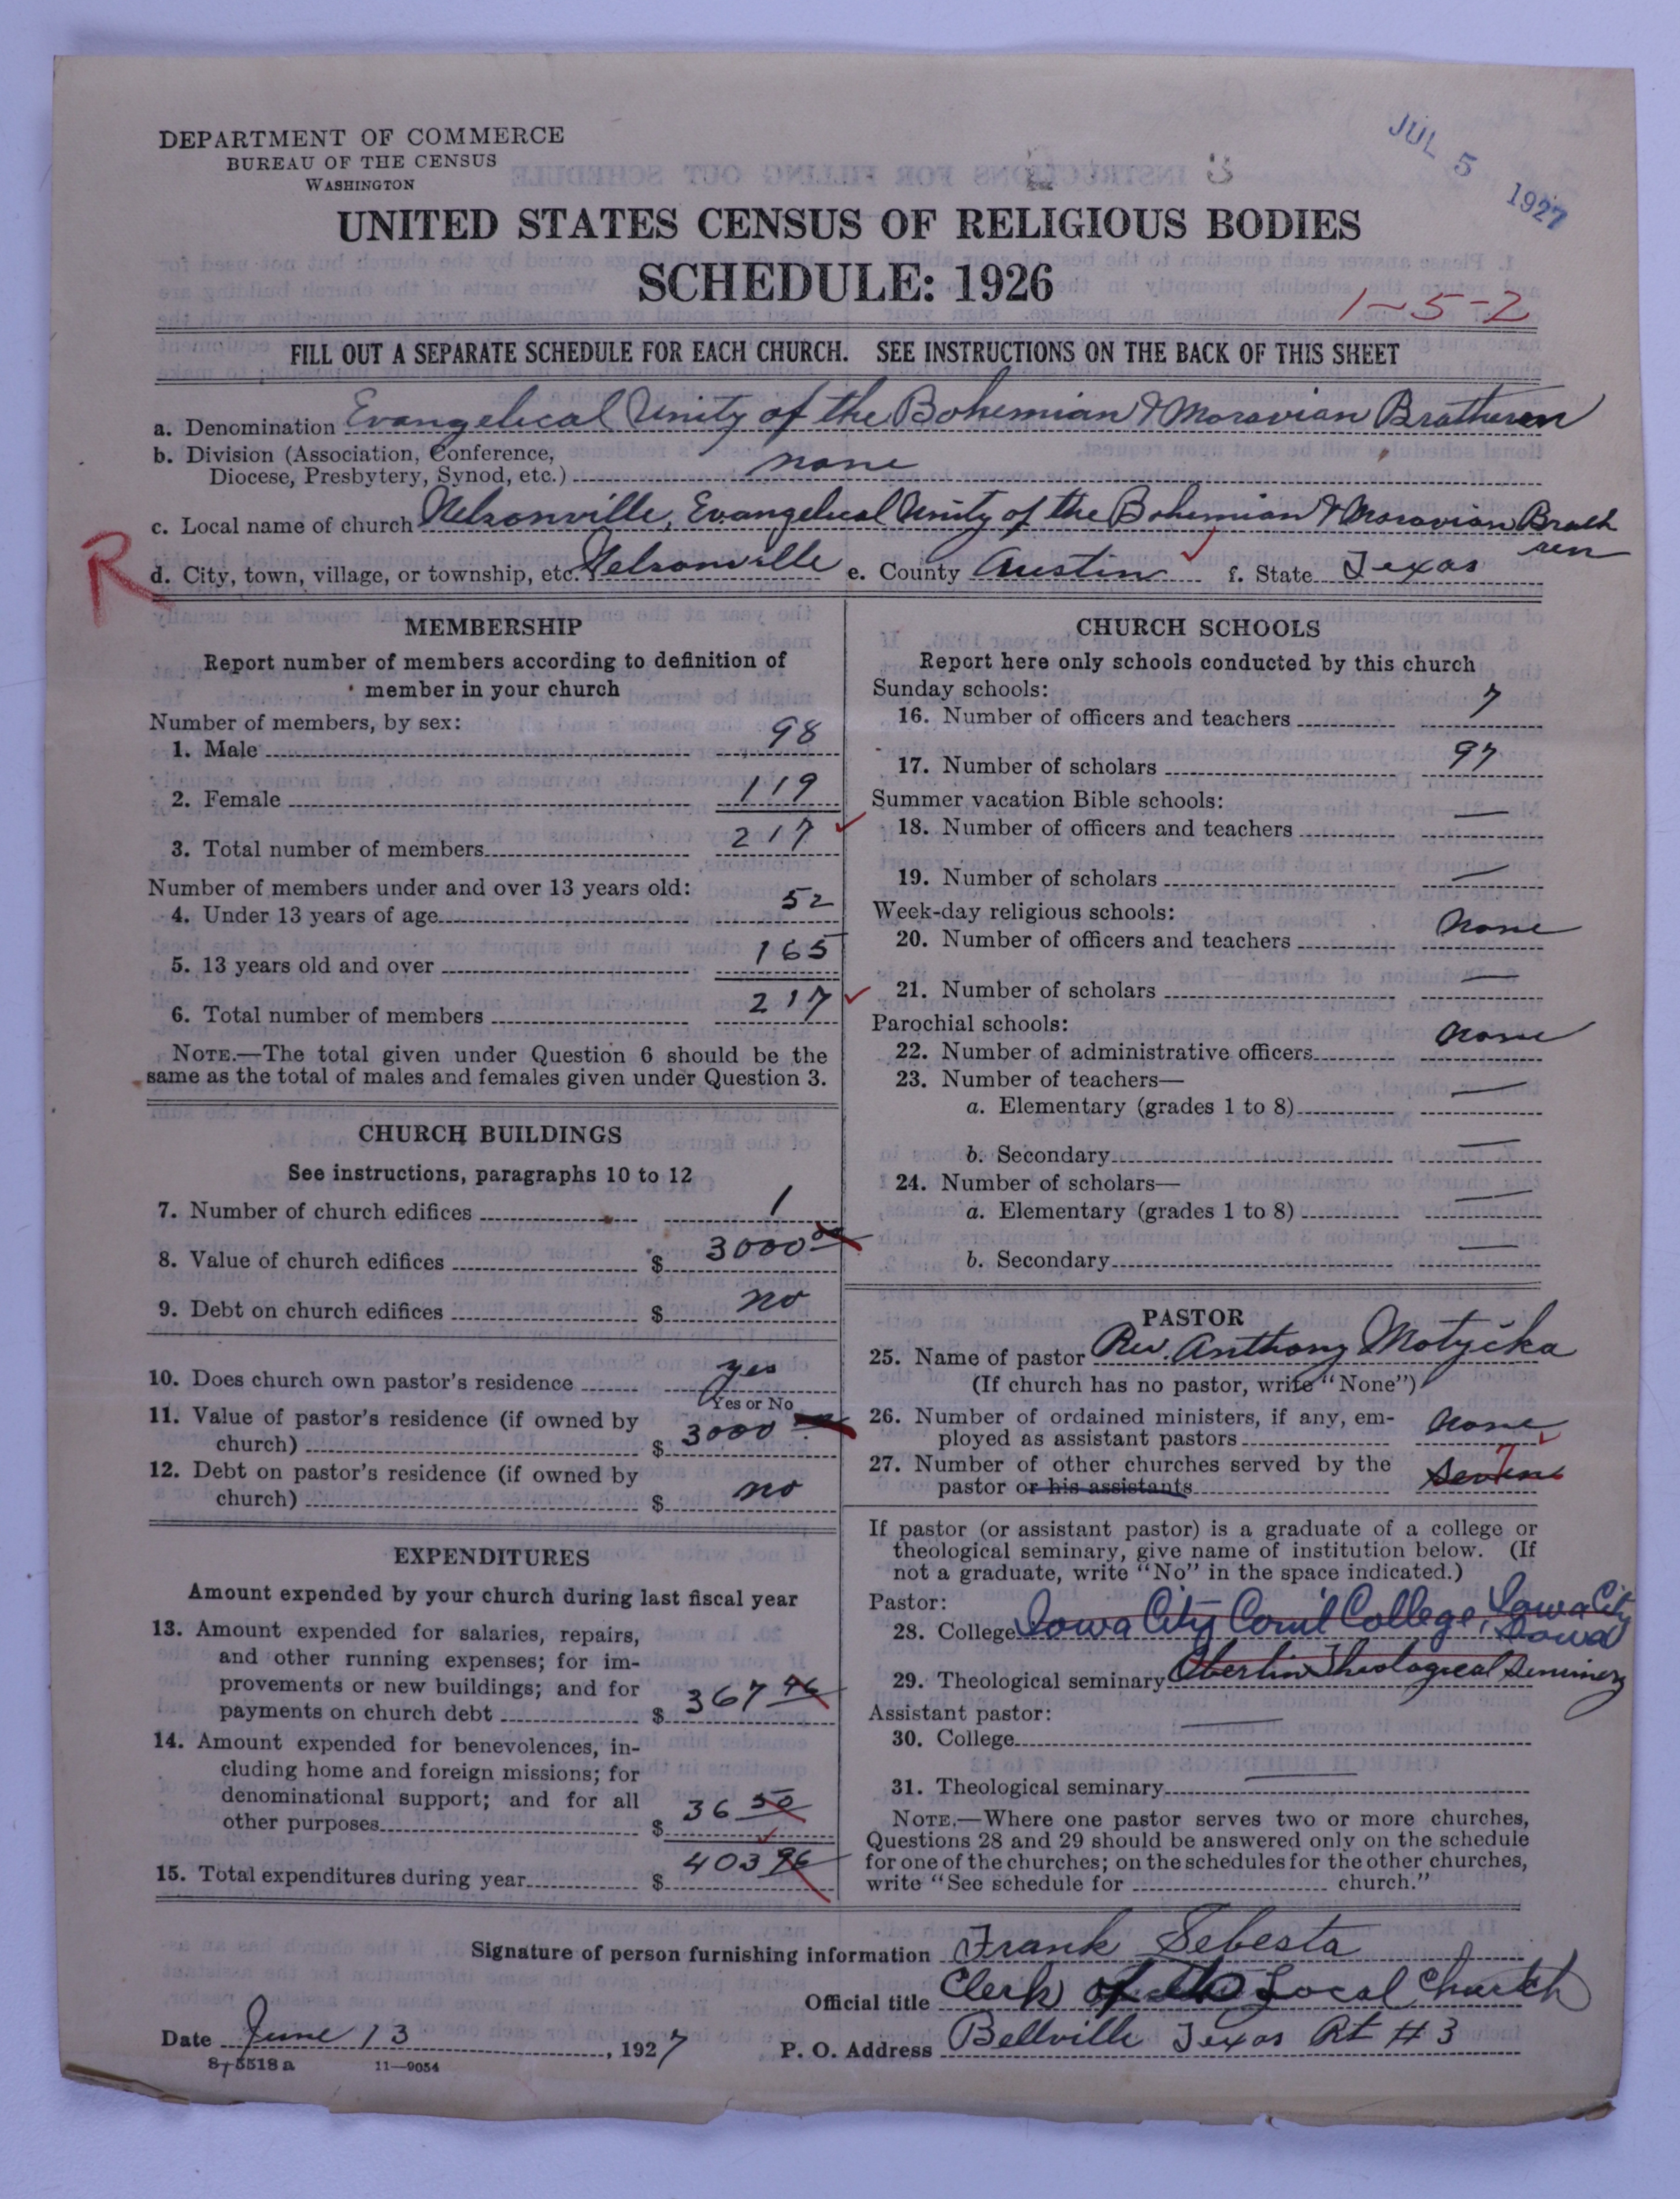 JUL 5 1927
DEPARTMENT OF COMMERCE
BUREAU OF THE CENSUS
WASHINGTON
UNITED STATES CENSUS OF RELIGIOUS BODIES
SCHEDULE: 1926
1-5-2
FILL OUT A SEPARATE SCHEDULE FOR EACH CHURCH. SEE INSTRUCTIONS ON THE BACK OF THIS SHEET
a. Denomination Evangelical Unity of the Bohemian & Moravian Bratheren
b. Division (Association, Conference,
Diocese, Presbytery, Synod, etc.) none
c. Local name of church Nelsonville, Evangelical Unity of the Bohemian & Moravian Brath
ren
R
d. City, town, village, or township, etc. Nelsonville e. County Austin f. State Texas
MEMBERSHIP
Report number of members according to definition of
member in your church
Number of members, by sex:
1. Male 98
2. Female 119
3. Total number of members 217
Number of members under and over 13 years old:
4. Under 13 years of age 52
5. 13 years old and over 165
6. Total number of members 217
NOTE.—The total given under Question 6 should be the
same as the total of males and females given under Question 3.
CHURCH BUILDINGS
See instructions, paragraphs 10 to 12
7. Number of church edifices 1
8. Value of church edifices $ 3000 00
9. Debt on church edifices $ no
10. Does church own pastor's residence yes
Yes or No
11. Value of pastor's residence (if owned by
church) $ 3000
12. Debt on pastor's residence (if owned by
church) $ no
EXPENDITURES
Amount expended by your church during last fiscal year
13. Amount expended for salaries, repairs,
and other running expenses; for im-
provements or new buildings; and for
payments on church debt $ 367 46
14. Amount expended for benevolences, in-
cluding home and foreign missions; for
denominational support; and for all
other purposes $ 36 50
15. Total expenditures during year $ 403 96
CHURCH SCHOOLS
Report here only schools conducted by this church
Sunday schools:
16. Number of officers and teachers 7
17. Number of scholars 97
Summer vacation Bible schools:
18. Number of officers and teachers —
19. Number of scholars —
Week-day religious schools:
20. Number of officers and teachers none
21. Number of scholars —
Parochial schools:
22. Number of administrative officers none
23. Number of teachers—
a. Elementary (grades 1 to 8) —
b. Secondary —
24. Number of scholars—
a. Elementary (grades 1 to 8) —
b. Secondary —
PASTOR
25. Name of pastor Rev. Anthony Motycka
(If church has no pastor, write "None")
26. Number of ordained ministers, if any, em-
ployed as assistant pastors none
27. Number of other churches served by the 7
pastor or his assistants
If pastor (or assistant pastor) is a graduate of a college or
theological seminary, give name of institution below. (If
not a graduate, write "No" in the space indicated.)
Pastor:
28. College Iowa City Com'l College, Iowa City
Iowa
29. Theological seminary Oberlin Theological Seminary
Assistant pastor:
30. College —
31. Theological seminary —
NOTE.—Where one pastor serves two or more churches,
Questions 28 and 29 should be answered only on the schedule
for one of the churches; on the schedules for the other churches,
write "See schedule for church."
Signature of person furnishing information Frank Sebesta
Official title Clerk of the Local Church
Date June 13, 1927 P. O. Address Bellville Texas Rt # 3
8-5518 a 11—9054